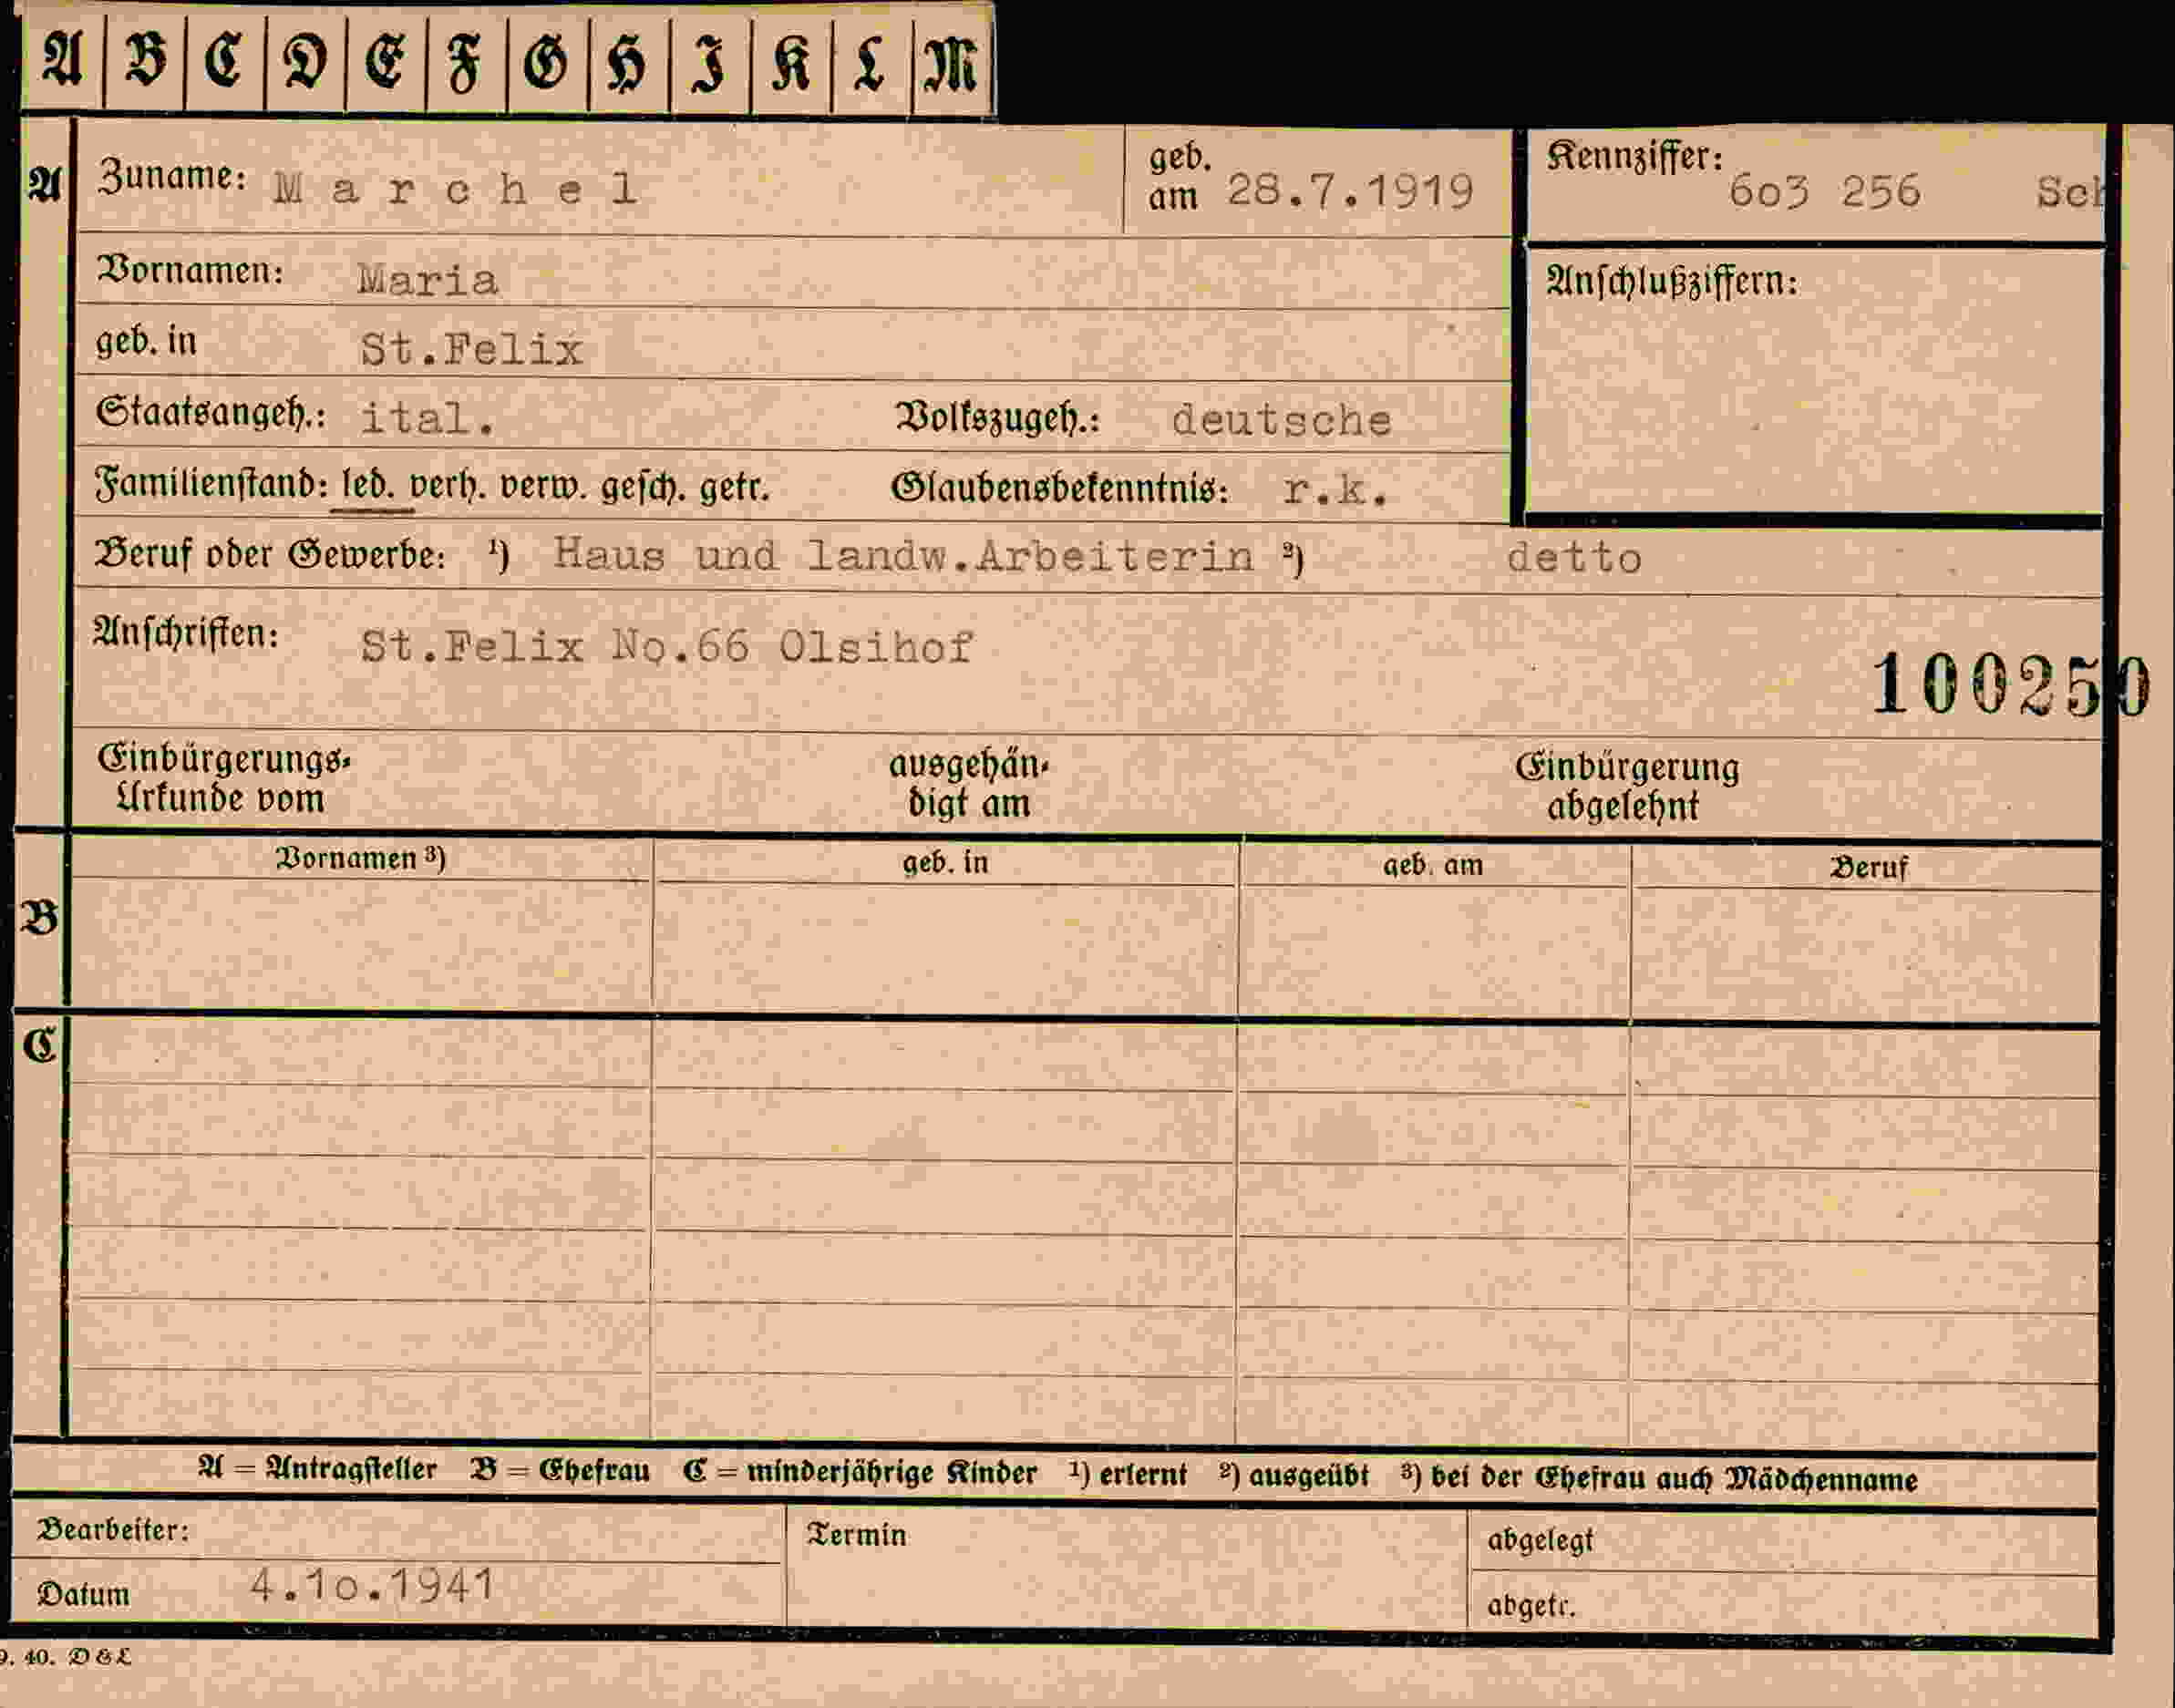 A B C D E F G H I K L M
A Zuname: Marchel geb. am 28.7.1919 Kennziffer: 6o3 256 Sch
Vornamen: Maria Anschlußziffern:
geb. in St.Felix
Staatsangeh.: ital. Volkszugeh.: deutsche
Familienstand: led. verh. verw. gesch. getr. Glaubensbekenntnis: r.k.
Beruf oder Gewerbe: ¹) Haus und landw.Arbeiterin ²) detto
Anschriften: St.Felix No.66 Olsihof
100250
Einbürgerungs- ausgehän- Einbürgerung
Urkunde vom digt am abgelehnt
Vornamen ³) geb. in geb. am Beruf
B
C
A = Antragsteller B = Ehefrau C = minderjährige Kinder ¹) erlernt ²) ausgeübt ³) bei der Ehefrau auch Mädchenname
Bearbeiter: Termin abgelegt
Datum 4.1o.1941 abgetr.
9. 40. D & L